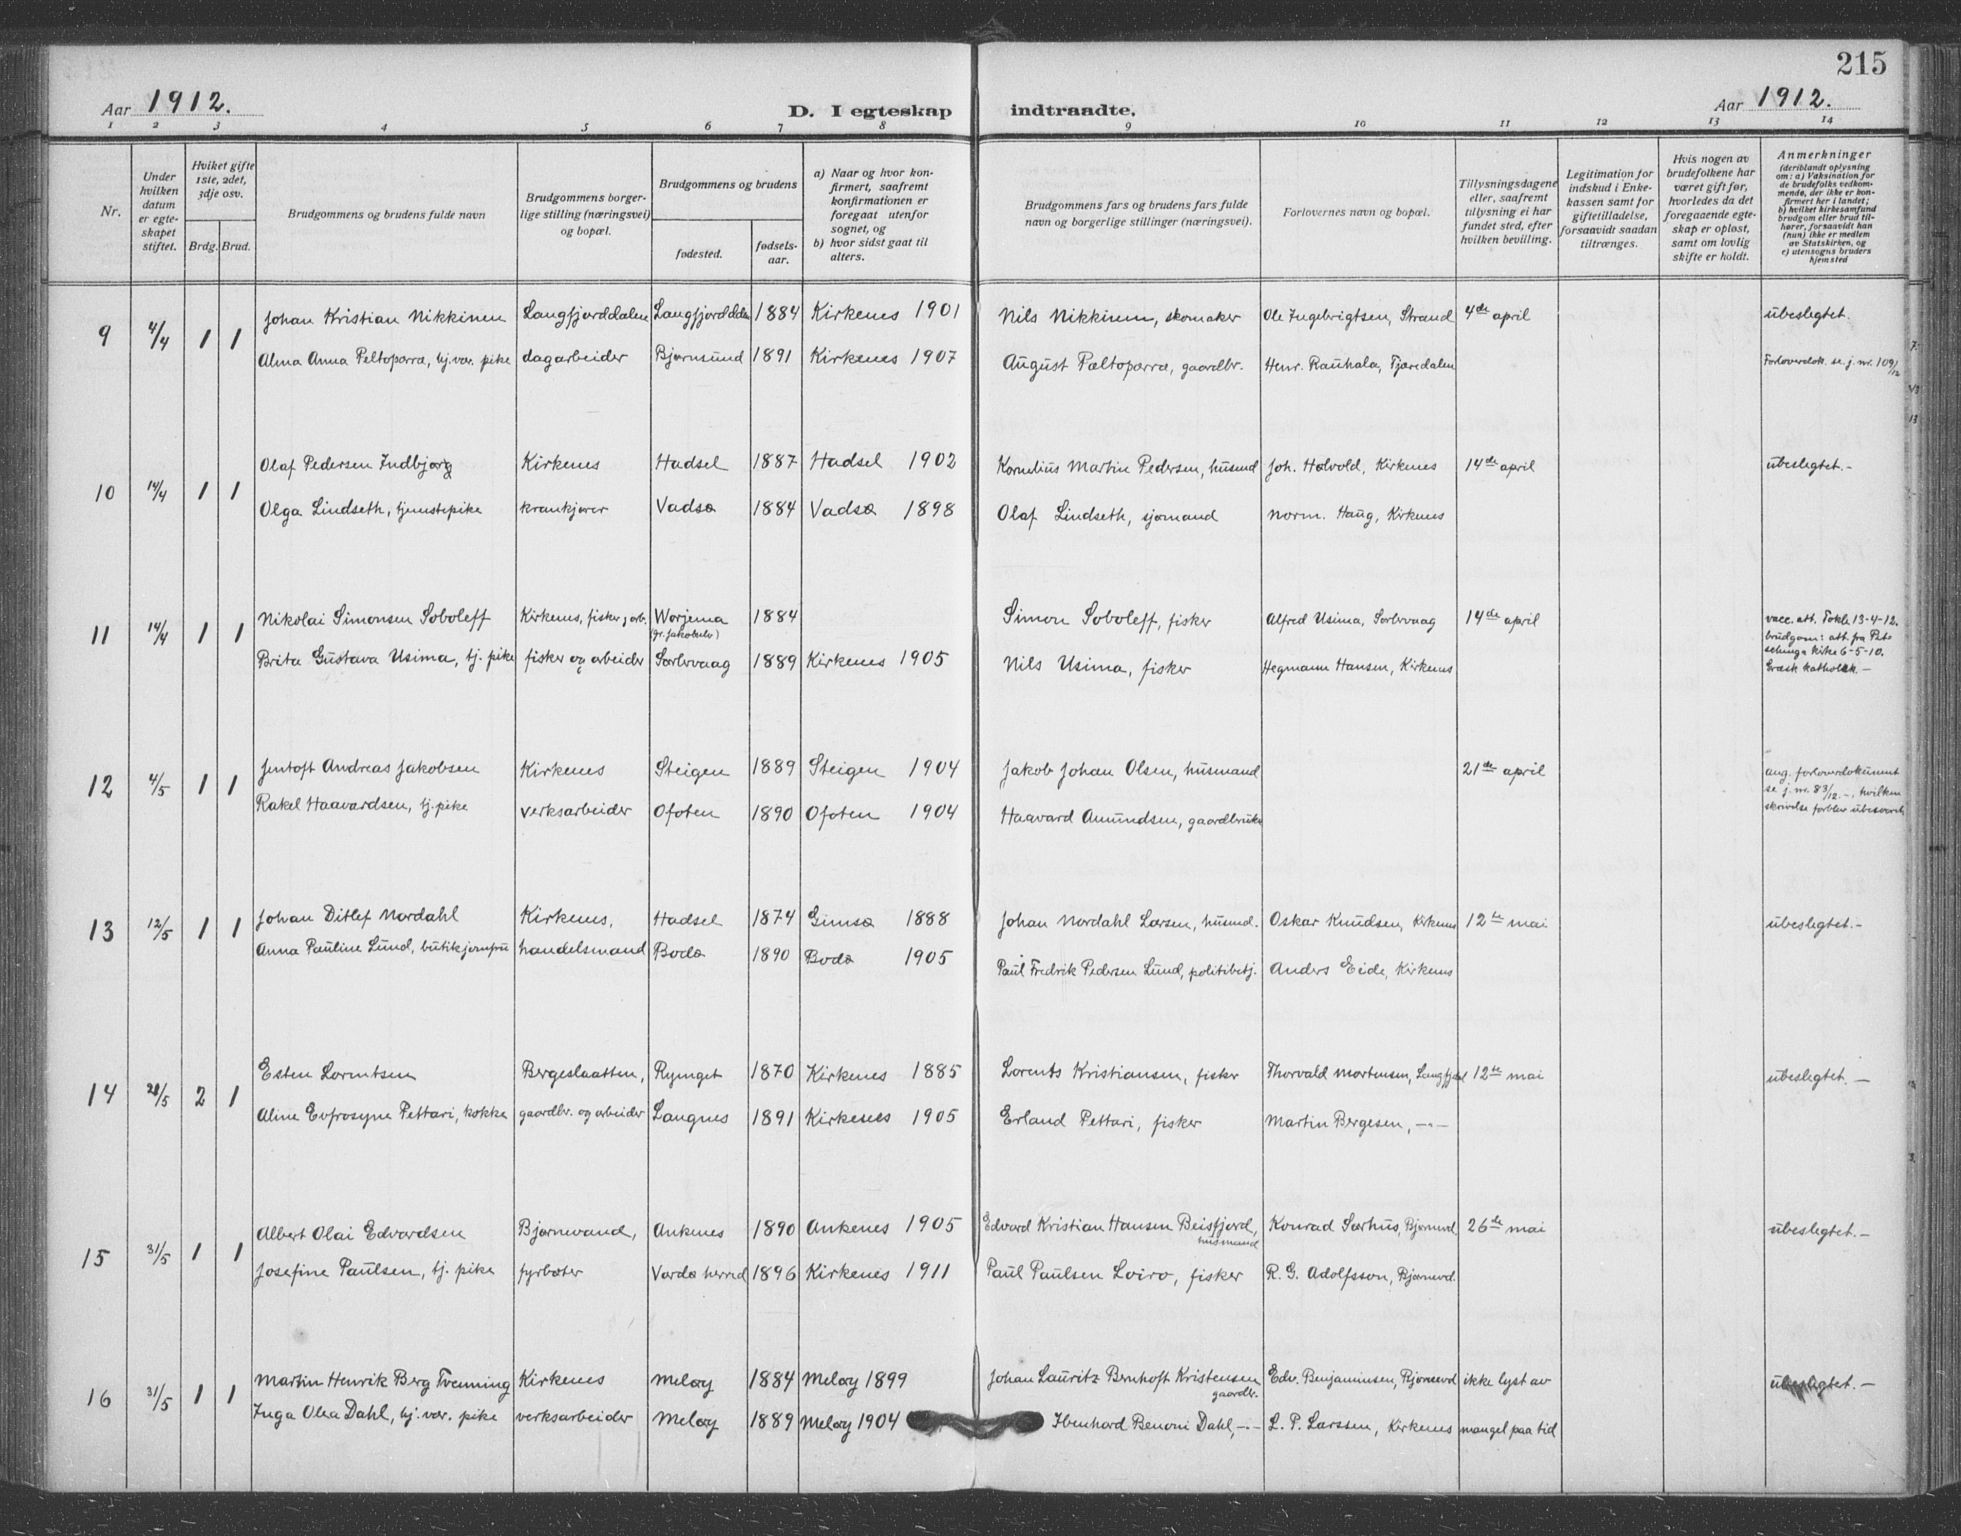 215
Aar 1912.
D. I egteskap indtraadte.
Aar 1912.
1 2 3 4 5 6 7 8 9 10 11 12 13 14
Nr.
Under hvilken datum er egteskapet stiftet.
Hviket gifte 1ste, 2det, 3dje osv.
Brdg. Brud.
Brudgommens og brudens fulde navn
Brudgommens borgerlige stilling (næringsvei) og bopæl.
Brudgommens og brudens
fødested.
fødselsaar.
a) Naar og hvor konfirmert, saafremt konfirmationen er foregaat utenfor sognet, og
b) hvor sidst gaat til alters.
Brudgommens fars og brudens fars fulde navn og borgerlige stillinger (næringsvei).
Forlovernes navn og bopæl.
Tillysningsdagene eller, saafremt tillysning ei har fundet sted, efter hvilken bevilling.
Legitimation for indskud i Enkekassen samt for giftetilladelse, forsaavidt saadan tiltrænges.
Hvis nogen av brudefolkene har været gift før, hvorledes da det foregaaende egteskap er opløst, samt om lovlig skifte er holdt.
Anmerkninger
(deriblandt oplysning om: a) Vaksination for de brudefolks vedkommende, der ikke er konfirmert her i landet;
b) hvilket kirkesamfund brudgom eller brud tilhører, forsaavidt han (hun) ikke er medlem av Statskirken, og
c) utensogns bruders hjemsted
9 4/4 1 1
Johan Kristian Nikkinen Langfjorddalen Langfjorddalen 1884 Kirkenes 1901 Nils Nikkinen, skomaker Ole Ingebrigtsen, Strand 4de april ubeslegtet.
Alma Anna Peltoparra, hj.vær. pike dagarbeider Bjørnsund 1891 Kirkenes 1907 August Peltoparra, gaardbr. Henr. Rauhala, Fjæredalen Forloverdok. se j. nr. 109/12
10 14/4 1 1
Olaf Pedersen Indbjorg Kirkenes Hadsel 1887 Hadsel 1902 Kornelius Martin Pedersen, husmd Joh. Halvold, Kirkenes 14de april ubeslegtet.-
Olga Lindseth, tjenstepike krankjører Vadsø 1884 Vadsø 1898 Olaf Lindseth, sjømand Norm. Haug, Kirkenes
11 14/4 1 1
Nikolai Simonsen Soboleff Kirkenes, fisker, arb. Worjema (Gr. Jakobselv) 1884 Simon Soboleff, fisker Alfred Usima, Sørbvaag 14de april vacc. att. 13-4-12.
Brita Gustava Usima, tj. pike fisker og arbeider Sørbvaag 1889 Kirkenes 1905 Nils Usima, fisker Hegmann Hansen, Kirkenes brudgom: att. fra Petschenga kirke 6-5-10.
Græsk katholsk.-
12 4/5 1 1
Jentoft Andreas Jakobsen Kirkenes Steigen 1889 Steigen 1904 Jakob Johan Olsen, husmand 21de april ang. forloverdokument
Rakel Haavardsen, tj. pike verksarbeider Ofoten 1890 Ofoten 1904 Haavard Amundsen, gaardbruker se j. nr. 83/12.-, hvilken skrivelse forblev ubesvaret.
13 12/5 1 1
Johan Ditlef Nordahl Kirkenes, Hadsel 1874 Gimsø 1888 Johan Nordahl Larsen, husmd. Oskar Knudsen, Kirkenes 12te mai ubeslegtet.-
Anna Pauline Lund, butikjomfru handelsmand Bodø 1890 Bodø 1905 Paul Fredrik Pedersen Lund, politibetj. Anders Eide, Kirkenes
14 28/5 2 1
Esten Lorentsen Bergeslaatten, Rymget 1870 Kirkenes 1885 Lorents Kristiansen, fisker Thorvald Mortensen, Langfjord 12te mai ubeslegtet.-
Aline Evfrosyne Pettari, kokke gaardbr. og arbeider Langnes 1891 Kirkenes 1905 Erland Pettari, fisker Martin Bergesen, -"-
15 31/5 1 1
Albert Olai Edvardsen Bjørnevand, Ankenes 1890 Ankenes 1905 Edvard Kristian Hansen Beisfjord, husmand Konrad Sørhus, Bjørnevd 26de mai ubeslegtet.-
Josefine Paulsen, tj. pike fyrbøter Vardø herred 1896 Kirkenes 1911 Paul Paulsen Loiro, fisker R. G. Adolfsson, Bjørnevd.
16 31/5 1 1
Martin Henrik Berg Tvenning Kirkenes Meløy 1884 Meløy 1899 Johan Lauritz Bernhoft Kristensen gaardbr. Edv. Benjaminsen, Bjørnevd ikke lyst av ubeslegtet.-
Inga Olea Dahl, hj. vær. pike verksarbeider Meløy 1889 Meløy 1904 Ibenhard Benoni Dahl, -"- L. P. Larssen, Kirkenes mangel paa tid